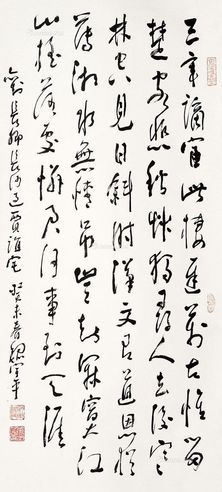 三年謫宦此棲遲萬古惟留
楚客悲秋草獨尋人去後寒
林空見日斜時漢文有道恩猶
薄湘水無情吊豈知寂寂江
山搖落處憐君何事到天涯
劉長卿長沙過賈誼宅 癸未春魏宇平